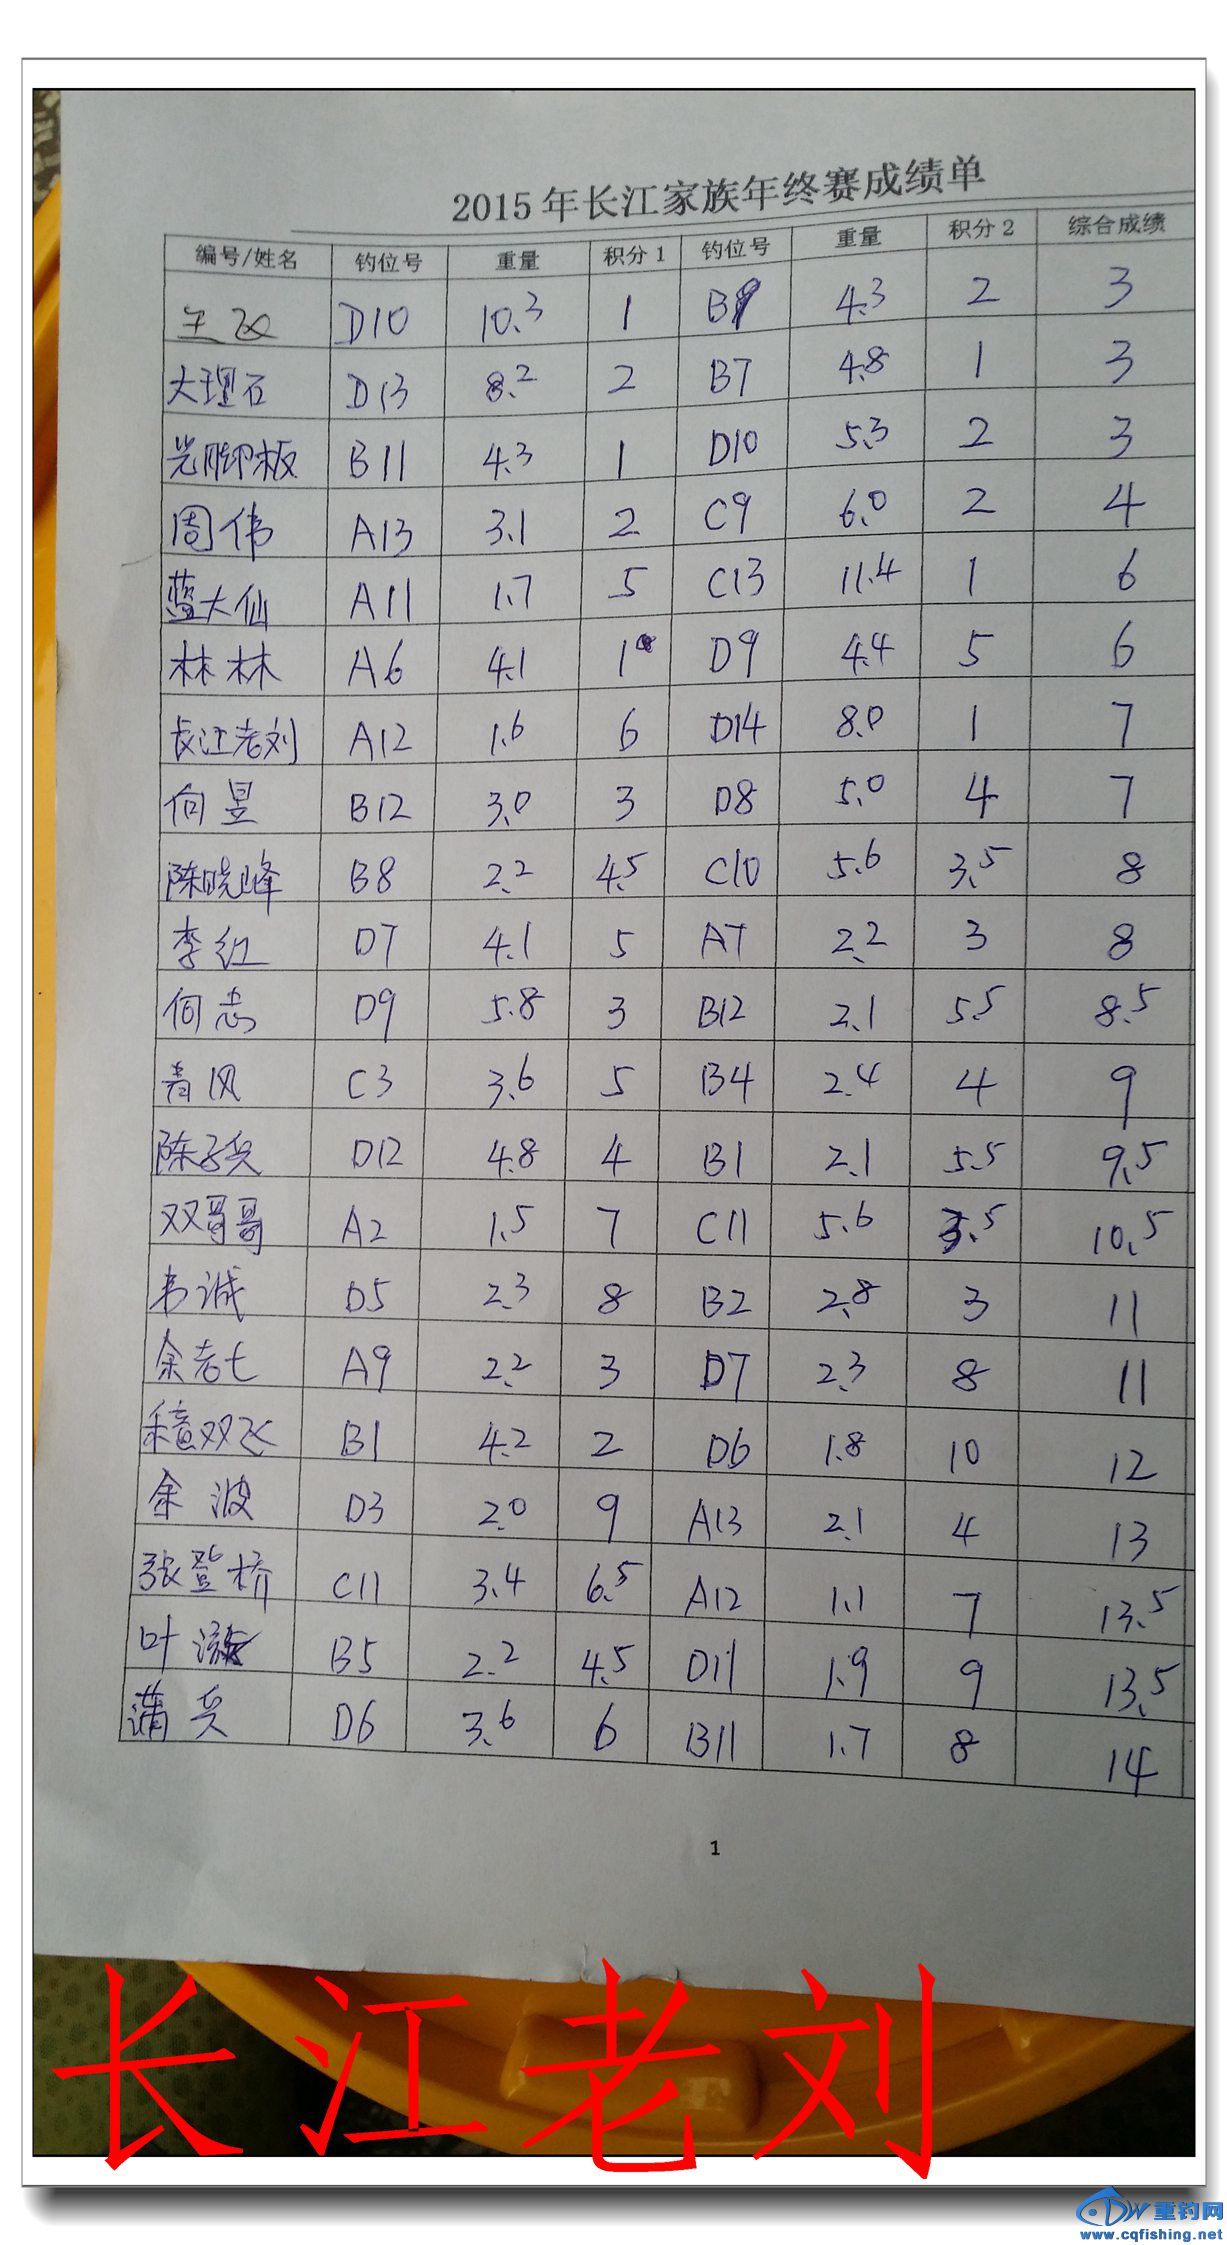 2015年长江家族年终赛成绩单
编号/姓名 钓位号 重量 积分1 钓位号 重量 积分2 综合成绩
D10 10.3 1 B9 4.3 2 3
大理石 D13 8.2 2 B7 4.8 1 3
光脚板 B11 4.3 1 D10 5.3 2 3
周伟 A13 3.1 2 C9 6.0 2 4
蓝大仙 A11 1.7 5 C13 11.4 1 6
林林 A6 4.1 1 D9 4.4 5 6
长江老刘 A12 1.6 6 D14 8.0 1 7
向昱 B12 3.0 3 D8 5.0 4 7
陈晓峰 B8 2.2 4.5 C10 5.6 3.5 8
李红 D7 4.1 5 A7 2.2 3 8
何志 D9 5.8 3 B12 2.1 5.5 8.5
清风 C3 3.6 5 B4 2.4 4 9
陈子兵 D12 4.8 4 B1 2.1 5.5 9.5
双哥哥 A2 1.5 7 C11 5.6 3.5 10.5
韦诚 D5 2.3 8 B2 2.8 3 11
余老七 A9 2.2 3 D7 2.3 8 11
双飞 B1 4.2 2 D6 1.8 10 12
余波 D3 2.0 9 A13 2.1 4 13
张登桥 C11 3.4 6.5 A12 1.1 7 13.5
叶 B5 2.2 4.5 D11 1.9 9 13.5
蒲兵 D6 3.6 6 B11 1.7 8 14
1
长江老刘
重钓网
www.cqfishing.net